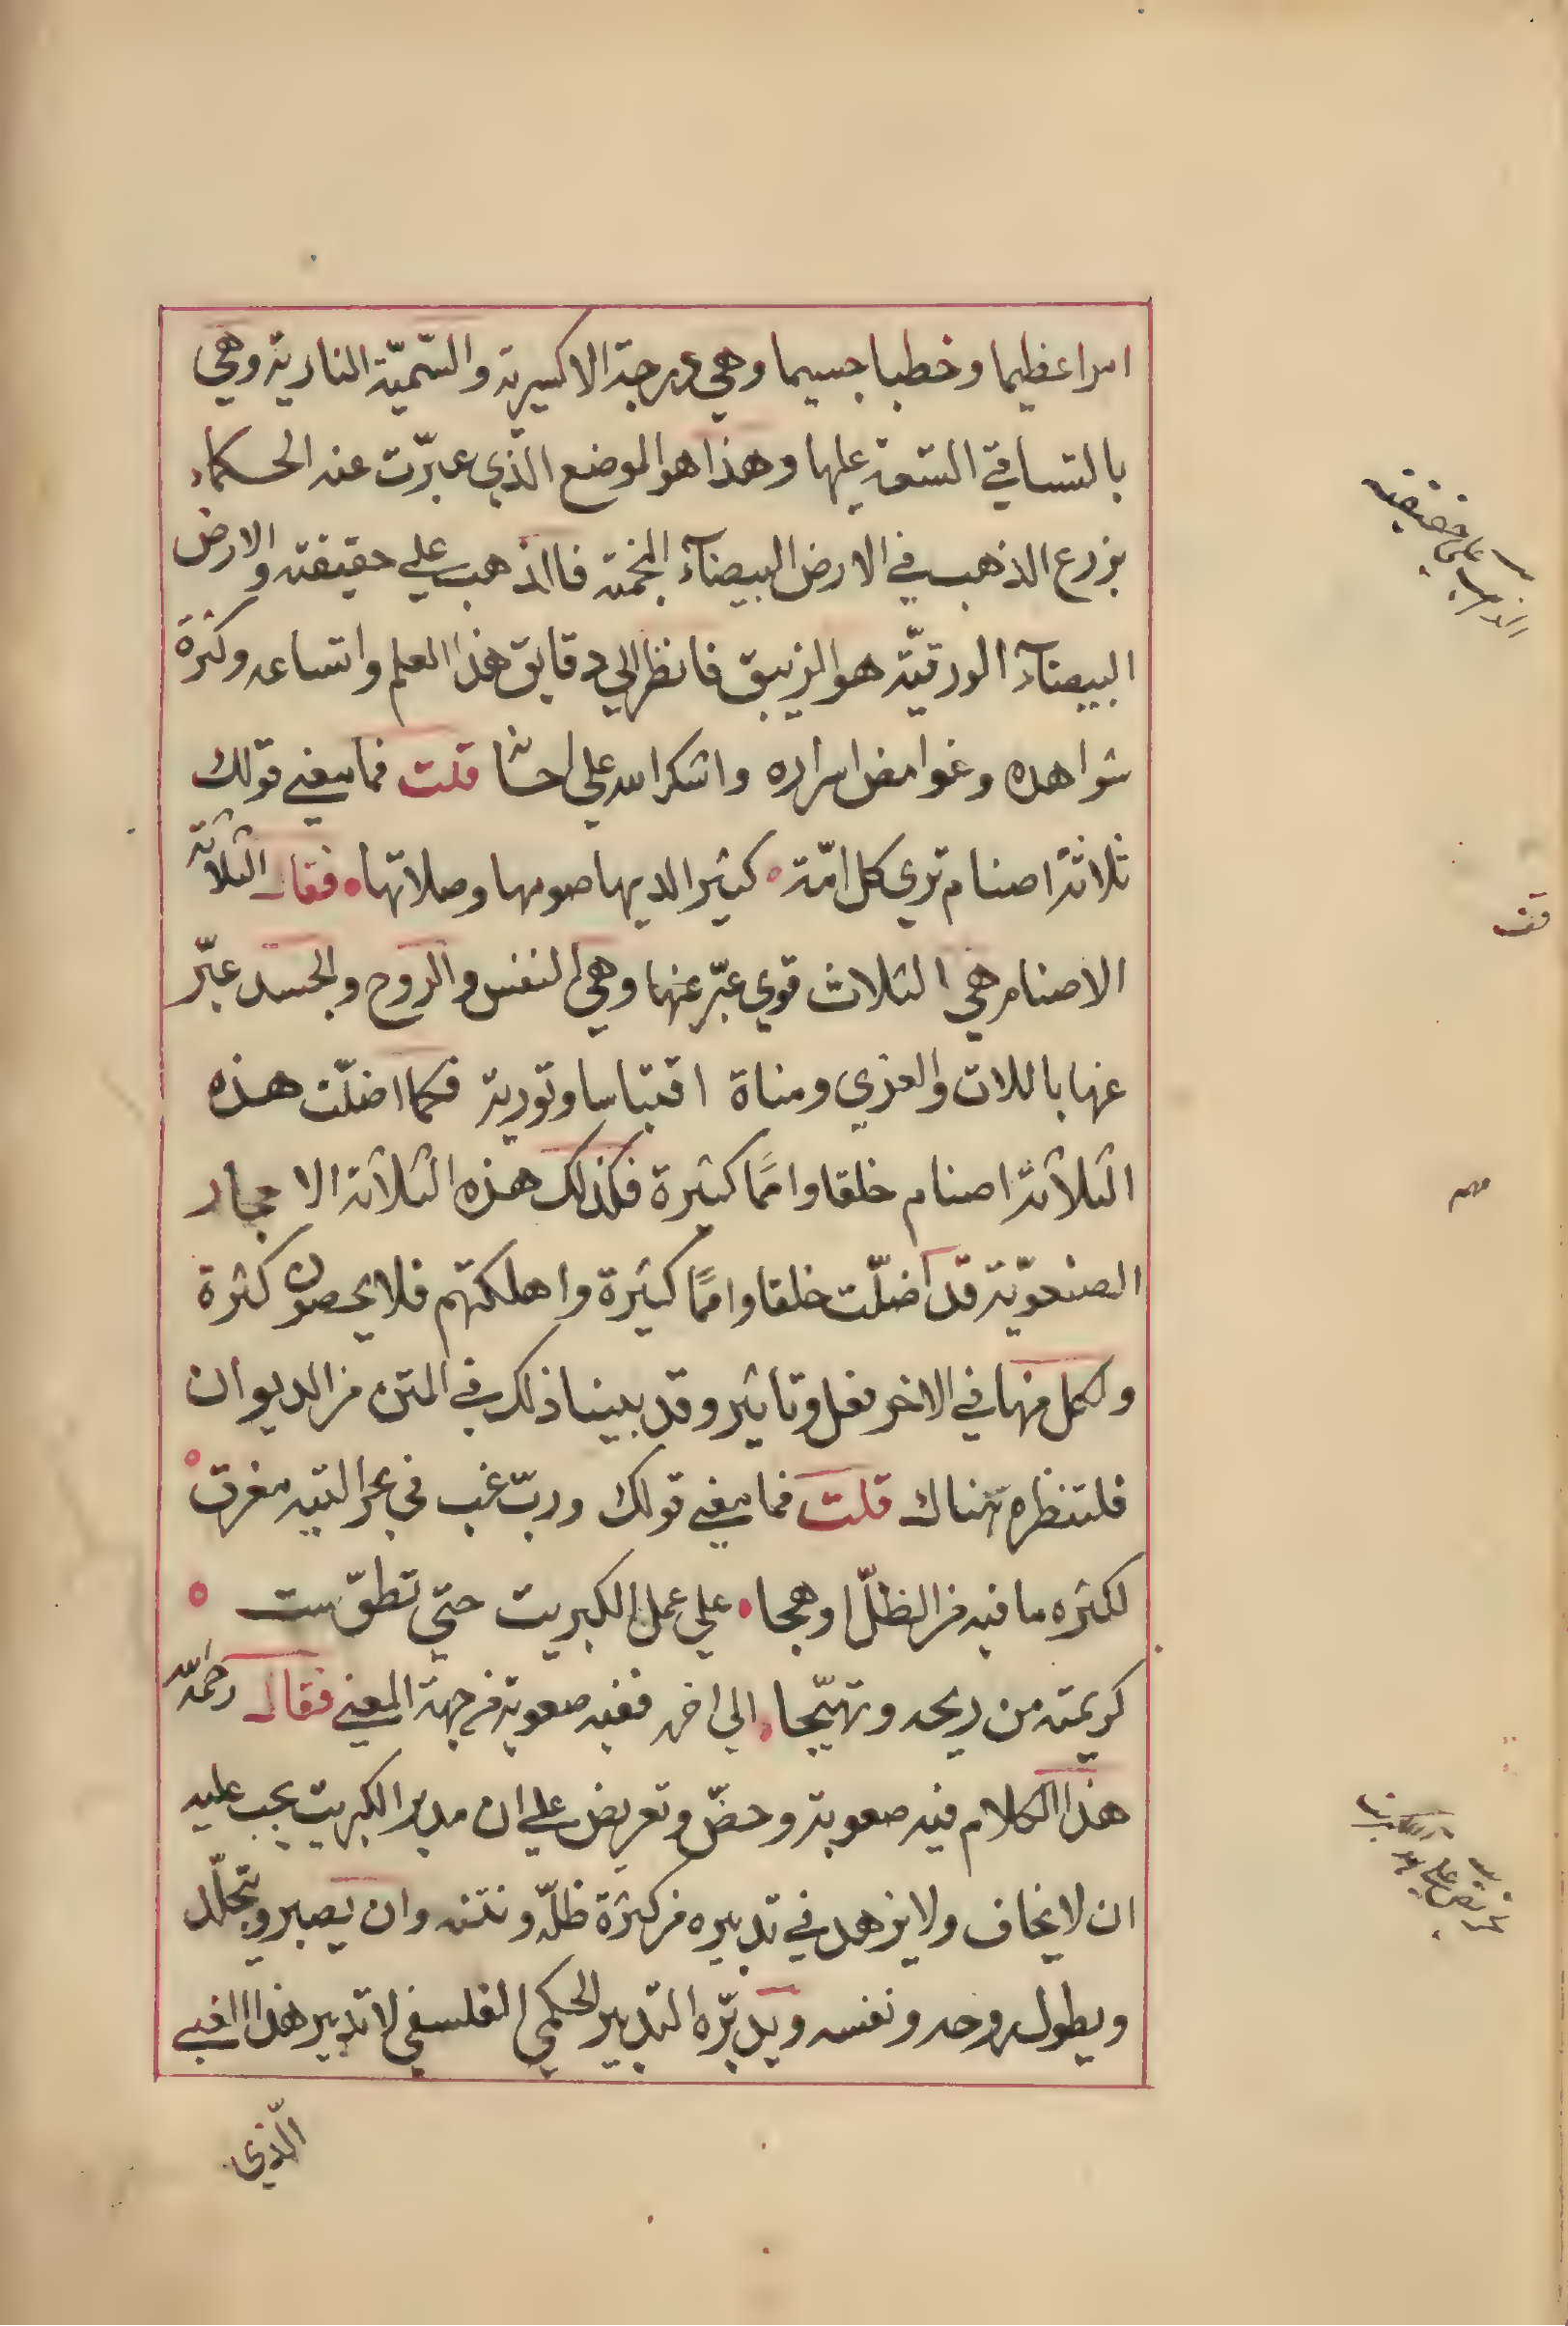 امرا عظيما وخطبا جسيما وهي درجة الاكسيرية والسّميّة النارية وهي
بالتساقي التسعة عليها وهذا هو الموضع الذي عبرّت عنه الحكماء
بزرع الذهب في الارض البيضآء النجمة فاالذهب علي حقيقته والارض
البيضآء الورقيّة هو الزيبق فانظر الي دقايق هذا العلم واتساعه وكثرة
شواهده وغوامض اسراره واشكر الله علي قلت فما معني قولك
ثلاثة اصنام تري كل امّة كثير الديها صومها وصلاتها فقال الثلاثة
الاصنام هي الثلاث قوي عبّر عنها وهي النفس والروح والجسد عبّر
عنها باللات والعزي ومناة اقتباسا وتورية فكما اضلّت هذه
الثلاثة اصنام خلقا وامًما كثيرة فكذلك هذه الثلاثة الاحجار
الصنعويّة قد اضلّت خلقا وامًما كثيرة واهلكتهم فلا يحصون كثرة
ولكل منها في الاخر فعل وتاثير وقد بينا ذلك في المتن من الديوان
فلتنظره هناك قلت فما معني قولك وربّ غب في بحر التيه مغرق
لكثره ما فيه من الظلّ اوهجا علي عمل الكبريت حتي تطوّست
كريمته من ريحه وتهيّجا الي اخره ففيه صعوبة من جهة المعني فقال رحمه الله
هذا الكلام فيه صعوبة وحضّ وتعريض علي ان مدبر الكبريت يجب عليه
ان لا يخاف ولا يزهد في تدبيره من كثرة ظلّه ونتنه وان يصبر ويتجلّد
ويطول روحه ونفسه ويدبّره التدبير الحكمي الفلسفي لا تدبير هذا الغبي
الّذي
الذهب علي حقيقته
قف
مهم